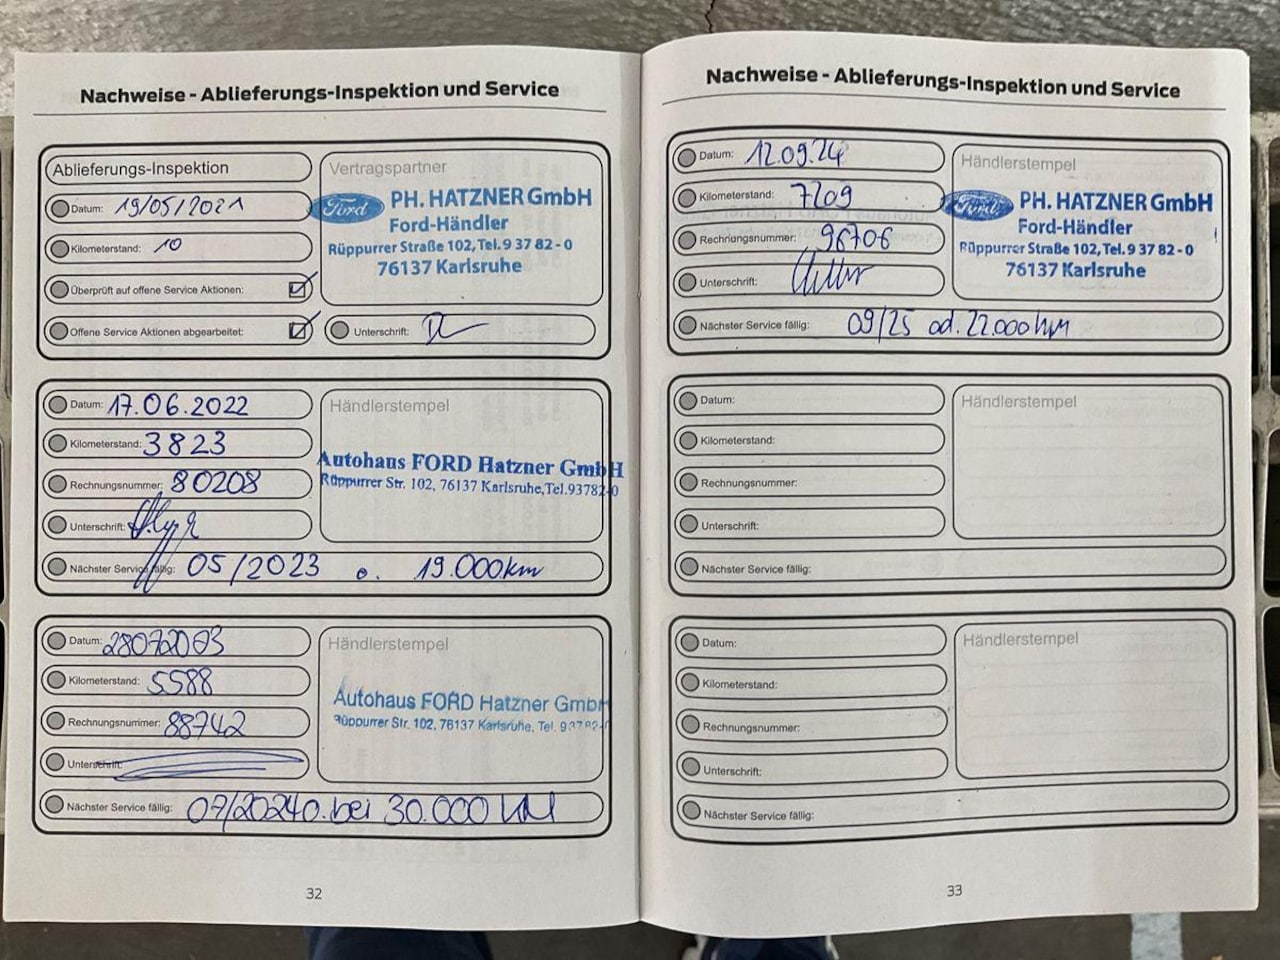 Nachweise - Ablieferungs-Inspektion und Service
Ablieferungs-Inspektion
Datum: 19/05/2021
Kilometerstand: 10
Überprüft auf offene Service Aktionen:
Offene Service Aktionen abgearbeitet:
Vertragspartner
Ford
PH. HATZNER GmbH
Ford-Händler
Rüppurrer Straße 102, Tel. 9 37 82 - 0
76137 Karlsruhe
Unterschrift:
Datum: 17.06.2022
Kilometerstand: 3823
Rechnungsnummer: 80208
Unterschrift:
Nächster Service fällig: 05/2023 o. 19.000km
Händlerstempel
Autohaus FORD Hatzner GmbH
Rüppurrer Str. 102, 76137 Karlsruhe, Tel.93782-0
Datum: 28072023
Kilometerstand: 5588
Rechnungsnummer: 88742
Unterschrift:
Nächster Service fällig: 07/2024 o. bei 30.000 KM
Händlerstempel
Autohaus FORD Hatzner GmbH
Rüppurrer Str. 102, 76137 Karlsruhe, Tel. 93782-0
32
Nachweise - Ablieferungs-Inspektion und Service
Datum: 12.09.24
Kilometerstand: 7209
Rechnungsnummer: 96706
Unterschrift:
Nächster Service fällig: 09/25 od. 22.000 km
Händlerstempel
Ford
PH. HATZNER GmbH
Ford-Händler
Rüppurrer Straße 102, Tel. 9 37 82 - 0
76137 Karlsruhe
Datum:
Kilometerstand:
Rechnungsnummer:
Unterschrift:
Nächster Service fällig:
Händlerstempel
Datum:
Kilometerstand:
Rechnungsnummer:
Unterschrift:
Nächster Service fällig:
Händlerstempel
33